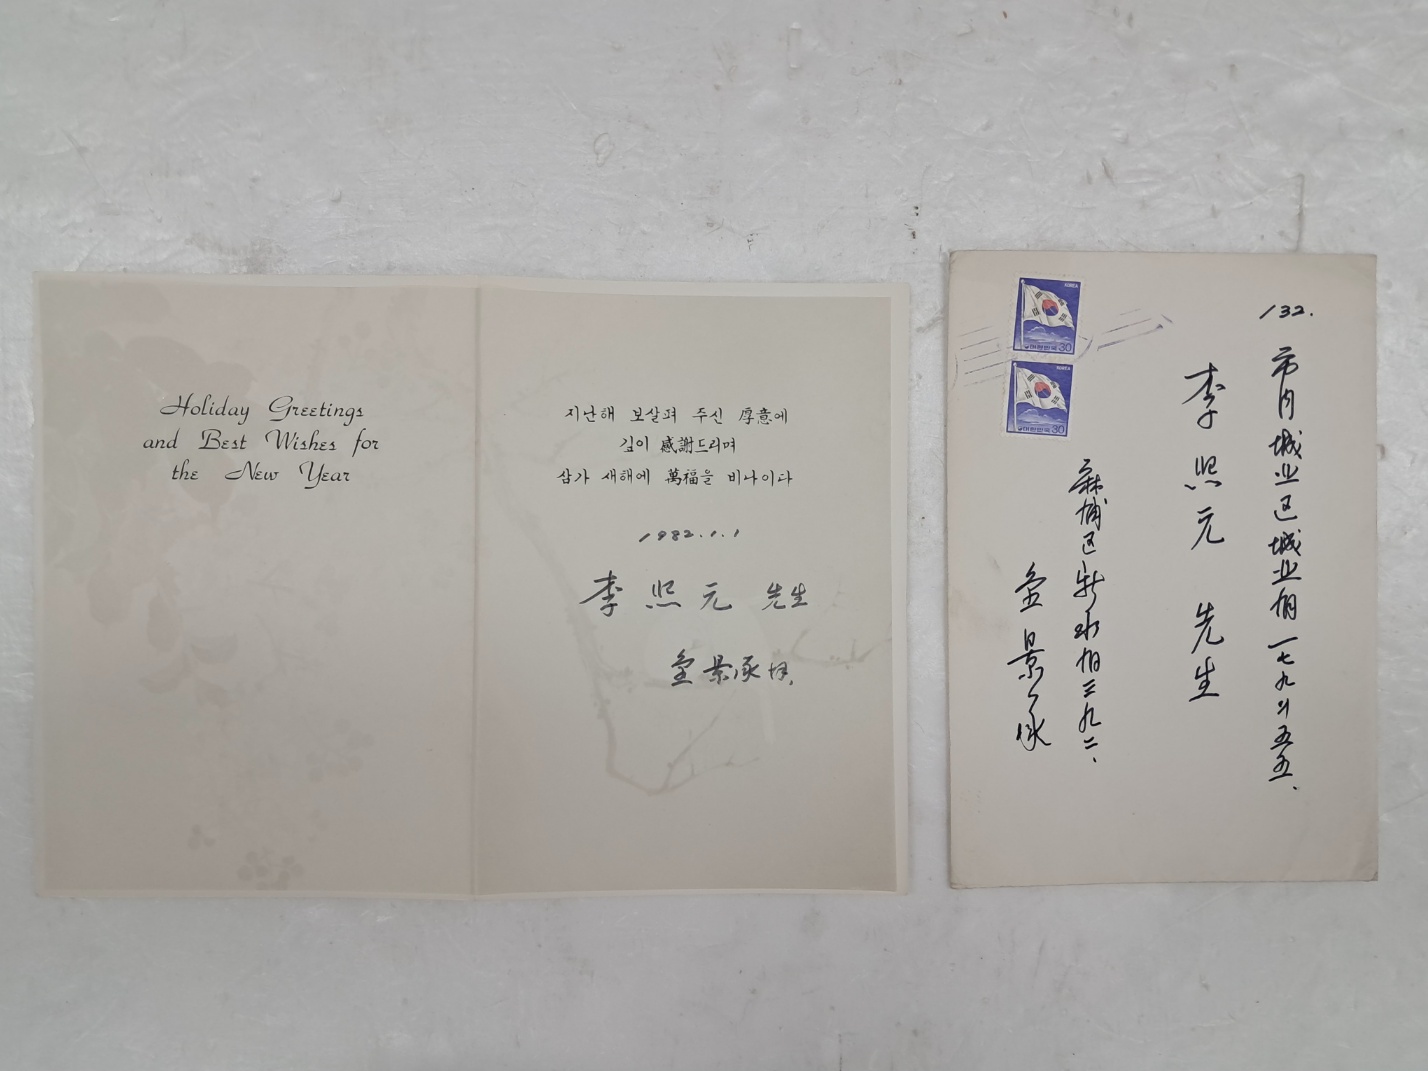 Holiday Greetings
and Best Wishes for
the New Year
지난해 보살펴 주신 厚意에
깊이 感謝드리며
삼가 새해에 萬福을 비나이다
1982.1.1
李 熙 元 先生
金 景 承 拜.
KOREA
대한민국 30
KOREA
대한민국 30
132.
市内 城北区 城北洞 一七九의 五五.
李 熙 元 先生
麻浦区 新水洞 三九二.
金 景 承